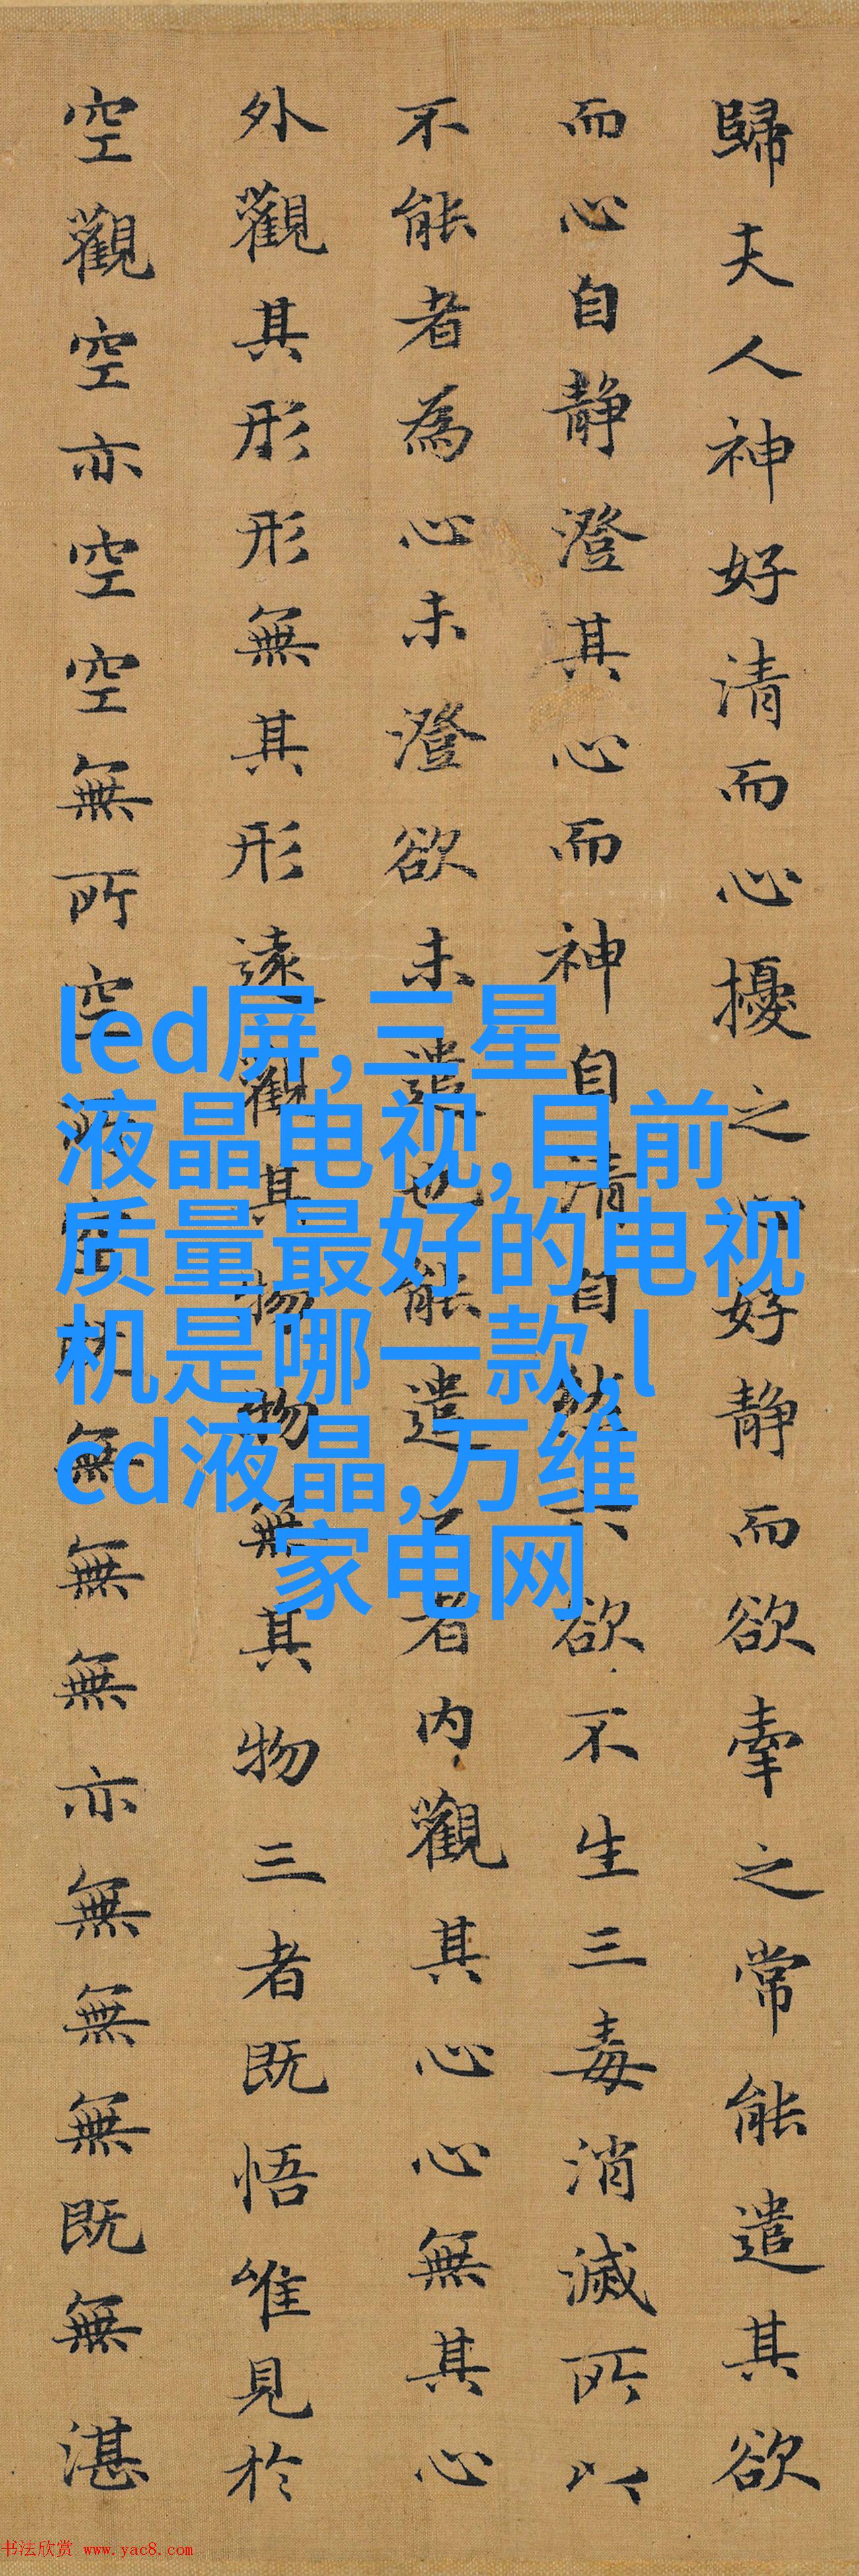 歸夫人神好清而心擾之心好静而欲牽之常能遣其欲
而心自静澄其心而神自清自然六欲不生三毒消滅所以
不能者為心未澄欲未遣也能遣之者内觀其心心無其心
外觀其形形無其形遠觀其物物無其物三者既悟唯見於
空觀空亦空空無所空所空既無無無亦無無無既無湛
led屏,三星
液晶电视,目前
质量最好的电视
机是哪一款,l
cd液晶,万维
家电网
书法欣赏 www.yac8.com